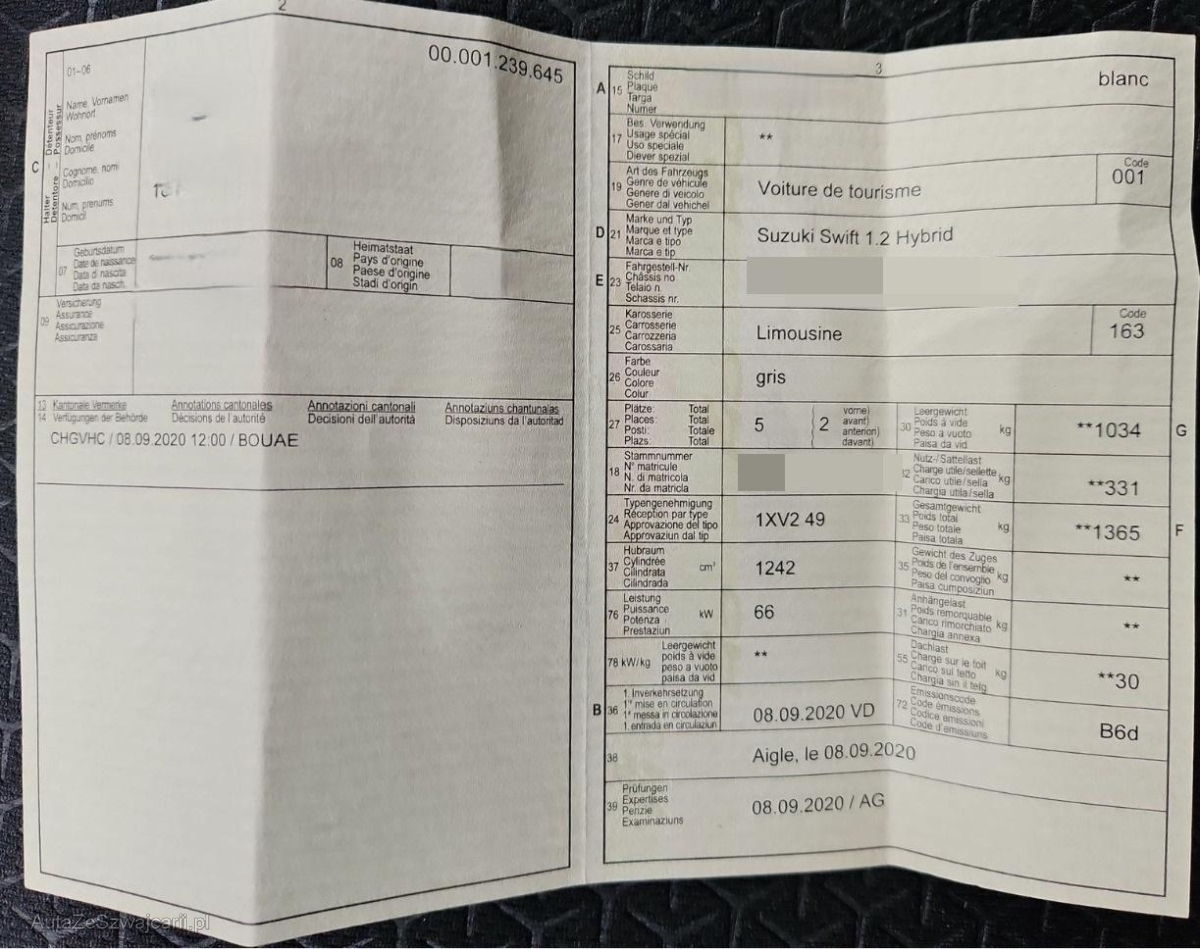 2
00.001.239.645
01-06
Name, Vornamen
Wohnort
Nom, prénoms
Domicile
Cognome, nomi
Domicilio
Num, prenums
Domicil
C
Halter - Détenteur
Detentore - Possessur
07
Geburtsdatum
Date de naissance
Data di nascita
Data da nasch.
08
Heimatstaat
Pays d'origine
Paese d'origine
Stadi d'origin
09
Versicherung
Assurance
Assicurazione
Assicuranza
13 Kantonale Vermerke Annotations cantonales Annotazioni cantonali Annotaziuns chantunalas
14 Verfügungen der Behörde Décisions de l'autorité Decisioni dell'autorità Disposiziuns da l'autoritad
CHGVHC / 08.09.2020 12:00 / BOUAE
3
A 15
Schild
Plaque
Targa
Numer
blanc
17
Bes. Verwendung
Usage spécial
Uso speciale
Diever spezial
**
19
Art des Fahrzeugs
Genre de véhicule
Genere di veicolo
Gener dal vehichel
Voiture de tourisme
Code
001
D 21
Marke und Typ
Marque et type
Marca e tipo
Marca e tip
Suzuki Swift 1.2 Hybrid
E 23
Fahrgestell-Nr.
Châssis no
Telaio n.
Schassis nr.
25
Karosserie
Carrosserie
Carrozzeria
Carossaria
Limousine
Code
163
26
Farbe
Couleur
Colore
Colur
gris
27
Plätze: Total
Places: Total
Posti: Totale
Plazs: Total
5
( 2
vorne)
avant)
anteriori)
davant)
30
Leergewicht
Poids à vide
Peso a vuoto
Paisa da vid
kg
**1034
G
18
Stammnummer
N° matricule
N. di matricola
Nr. da matricla
32
Nutz-/Sattellast
Charge utile/sellette
Carico utile/sella
Chargia utila/sella
kg
**331
24
Typengenehmigung
Réception par type
Approvazione del tipo
Approvaziun dal tip
1XV2 49
33
Gesamtgewicht
Poids total
Peso totale
Paisa totala
kg
**1365
F
37
Hubraum
Cylindrée
Cilindrata
Cilindrada
cm³
1242
35
Gewicht des Zuges
Poids de l'ensemble
Peso del convoglio
Paisa cumposiziun
kg
**
76
Leistung
Puissance
Potenza
Prestaziun
kW
66
31
Anhängelast
Poids remorquable
Carico rimorchiato
Chargia annexa
kg
**
78 kW/kg
Leergewicht
poids à vide
peso a vuoto
paisa da vid
**
55
Dachlast
Charge sur le toit
Carico sul tetto
Chargia sin il tetg
kg
**30
B 36
1. Inverkehrsetzung
1re mise en circulation
1a messa in circolazione
1. entrada en circulaziun
08.09.2020 VD
72
Emissionscode
Code émissions
Codice emissioni
Code d'emissiuns
B6d
38
Aigle, le 08.09.2020
39
Prüfungen
Expertises
Perizie
Examinaziuns
08.09.2020 / AG
AutaZeSzwajcarii.pl